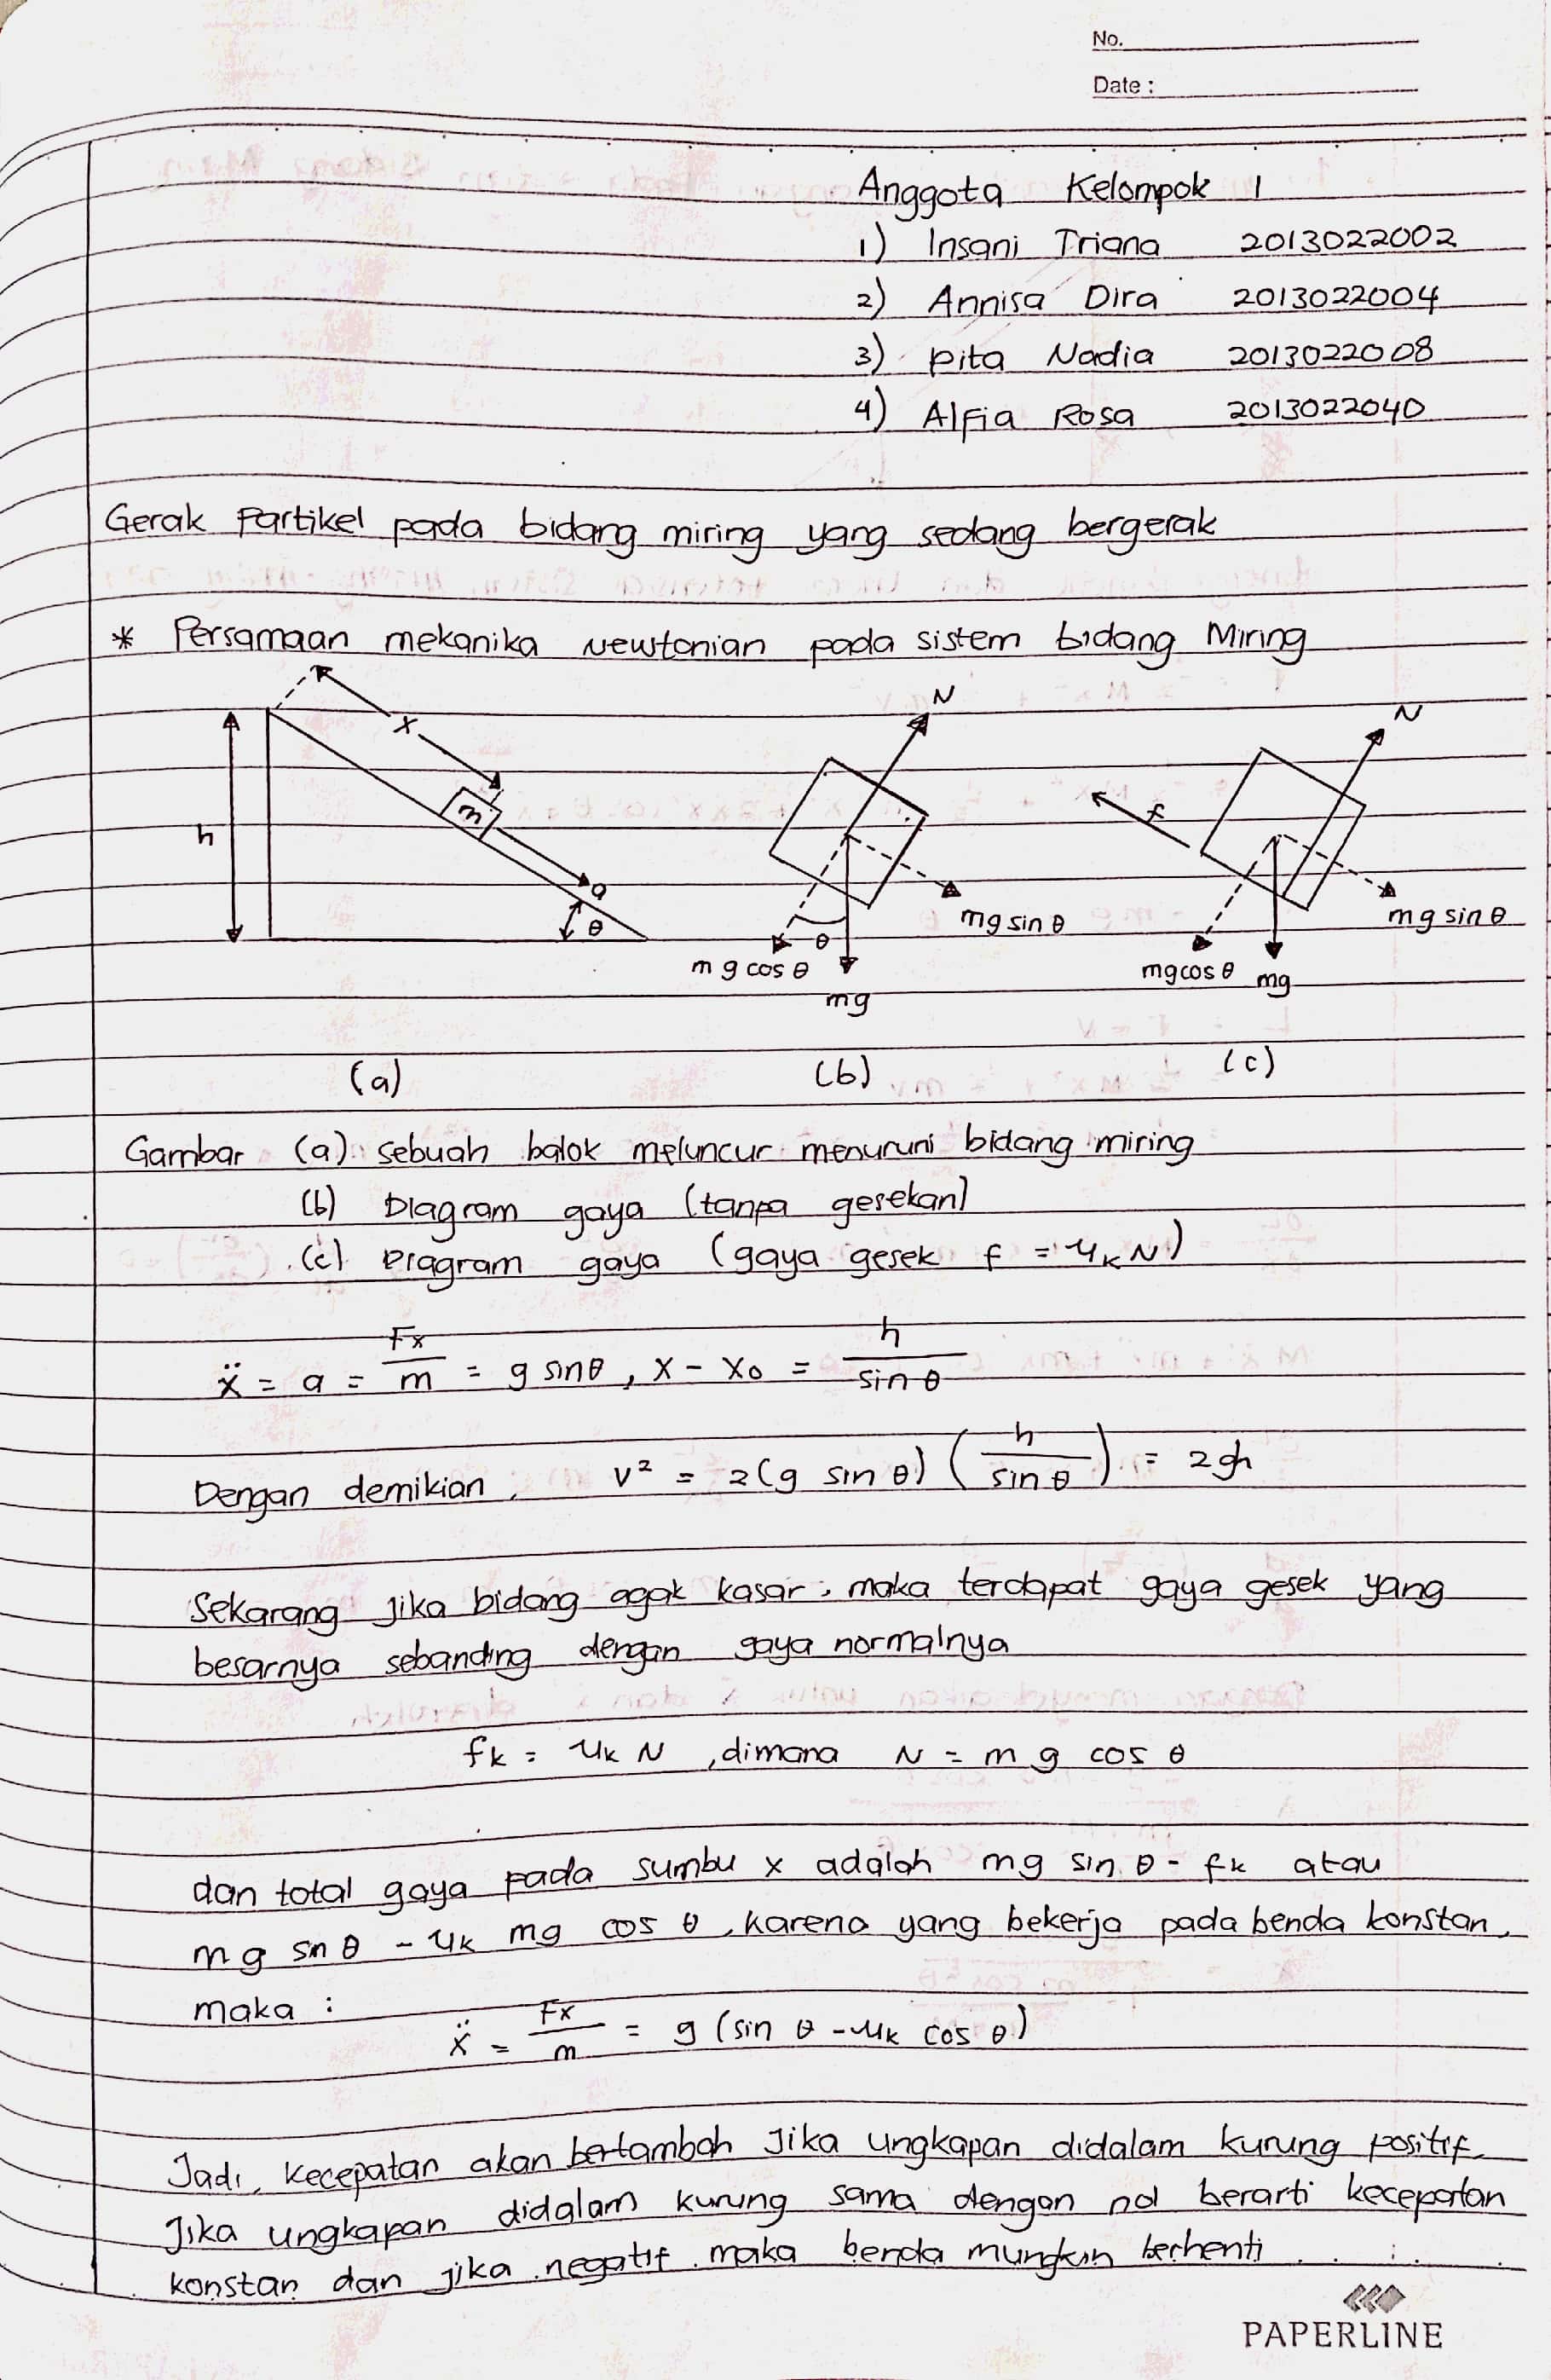 No.
Date :
Anggota Kelompok 1
1) Insani Triana 2013022002
2) Annisa Dira 2013022004
3) Pita Nadia 2013022008
4) Alfia Rosa 2013022040
Gerak Partikel pada bidang miring yang sedang bergerak
* Persamaan mekanika Newtonian pada sistem bidang Miring
x
h
m
a
θ
N
mg sin θ
θ
mg cos θ
mg
N
f
mg sin θ
mg cos θ
mg
(a) (b) (c)
Gambar (a) sebuah balok meluncur menuruni bidang miring
(b) Diagram gaya (tanpa gesekan)
(c) Diagram gaya (gaya gesek f = μk N)
ẍ = a = Fx/m = g sin θ, x - x0 = h/sin θ
Dengan demikian, v² = 2(g sin θ) (h/sin θ) = 2gh
Sekarang jika bidang agak kasar, maka terdapat gaya gesek yang
besarnya sebanding dengan gaya normalnya
fk = μk N , dimana N = m g cos θ
dan total gaya pada sumbu x adalah mg sin θ - fk atau
mg sin θ - μk mg cos θ, karena yang bekerja pada benda konstan,
maka :
ẍ = Fx/m = g (sin θ - μk cos θ)
Jadi, kecepatan akan bertambah Jika ungkapan didalam kurung positif,
Jika ungkapan didalam kurung sama dengan nol berarti kecepatan
konstan dan jika negatif, maka benda mungkin berhenti
PAPERLINE